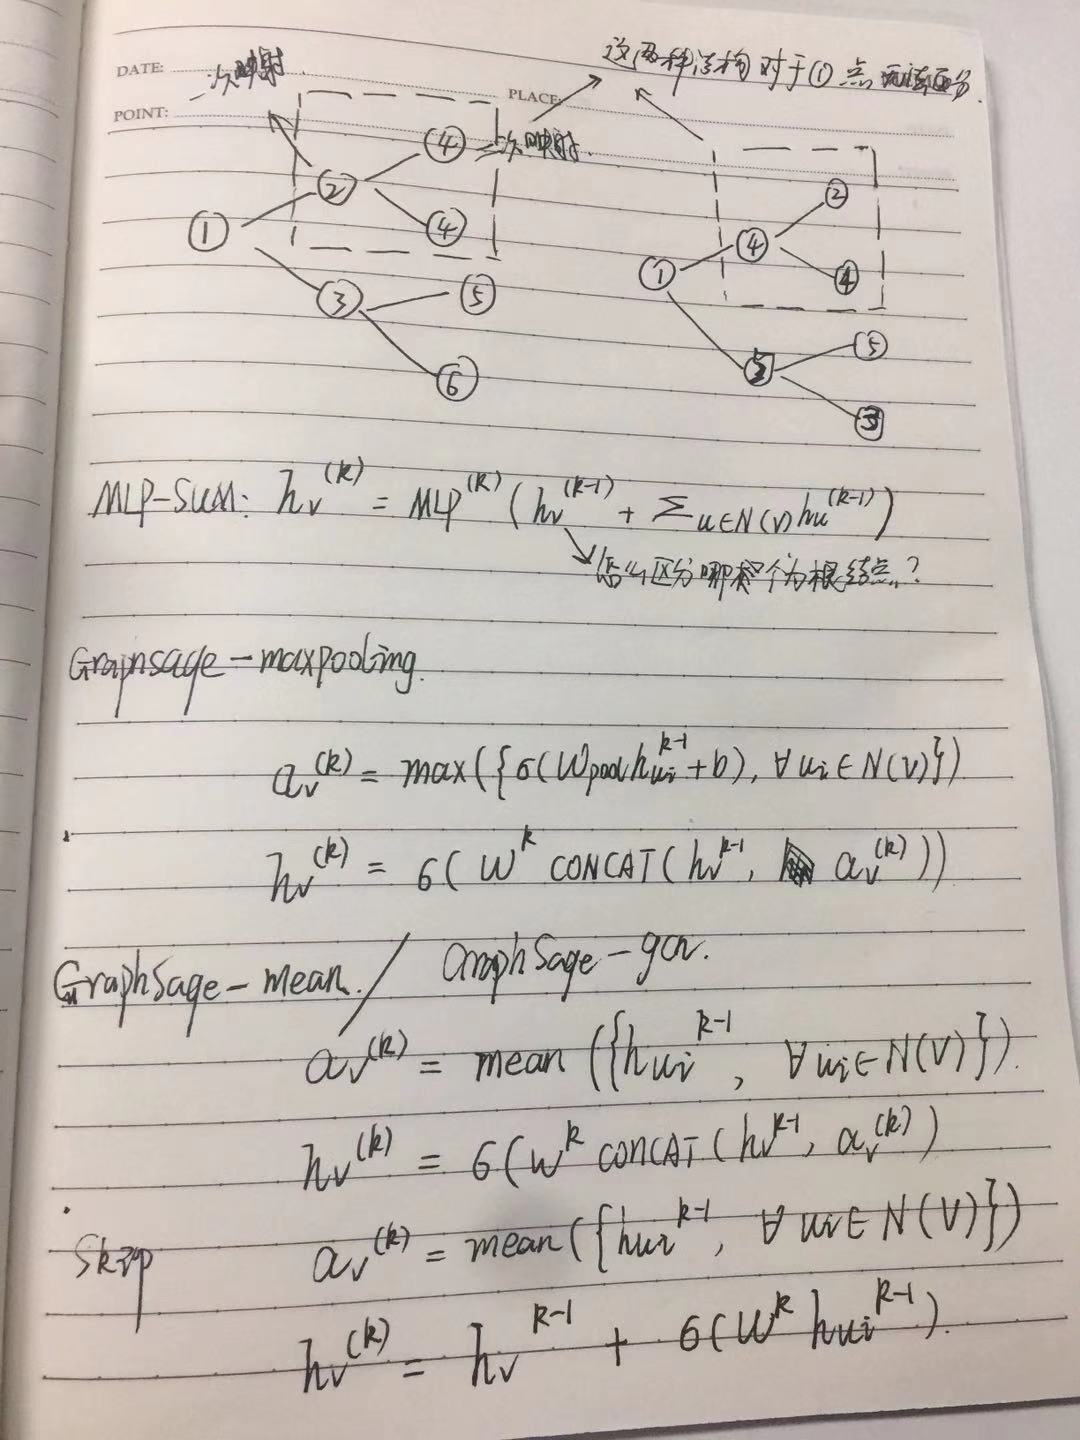 DATE: 一次映射
这两种结构对于①点无法区分.
POINT:
PLACE:
④ 二次映射.
②
④
①
③
⑤
⑥
②
④
①
④
⑤
MLP-SUM: hv^(k) = MLP^(k) (hv^(k-1) + Σu∈N(v) hu^(k-1))
怎么区分哪个为根结点?
Graphsage-maxpooling.
av^(k) = max({σ(Wpool hui^k-1 + b), ∀ui∈N(v)})
hv^(k) = σ(W^k CONCAT(hv^k-1, av^(k)))
GraphSage-mean. / GraphSage-gcn.
av^(k) = mean({hui^k-1, ∀ui∈N(v)}).
hv^(k) = σ(W^k CONCAT(hv^k-1, av^(k))
Skip av^(k) = mean({hui^k-1, ∀ui∈N(v)})
hv^(k) = hv^k-1 + σ(W^k hui^k-1).